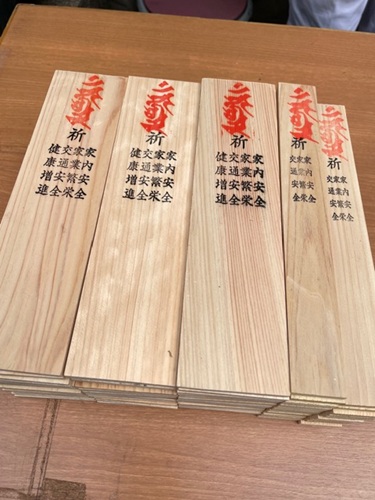 祈
家内安全
家業繁栄
交通安全
健康増進
祈
家内安全
家業繁栄
交通安全
健康増進
祈
家内安全
家業繁栄
交通安全
健康増進
祈
家内安全
家業繁栄
交通安全
祈
家内安全
家業繁栄
交通安全